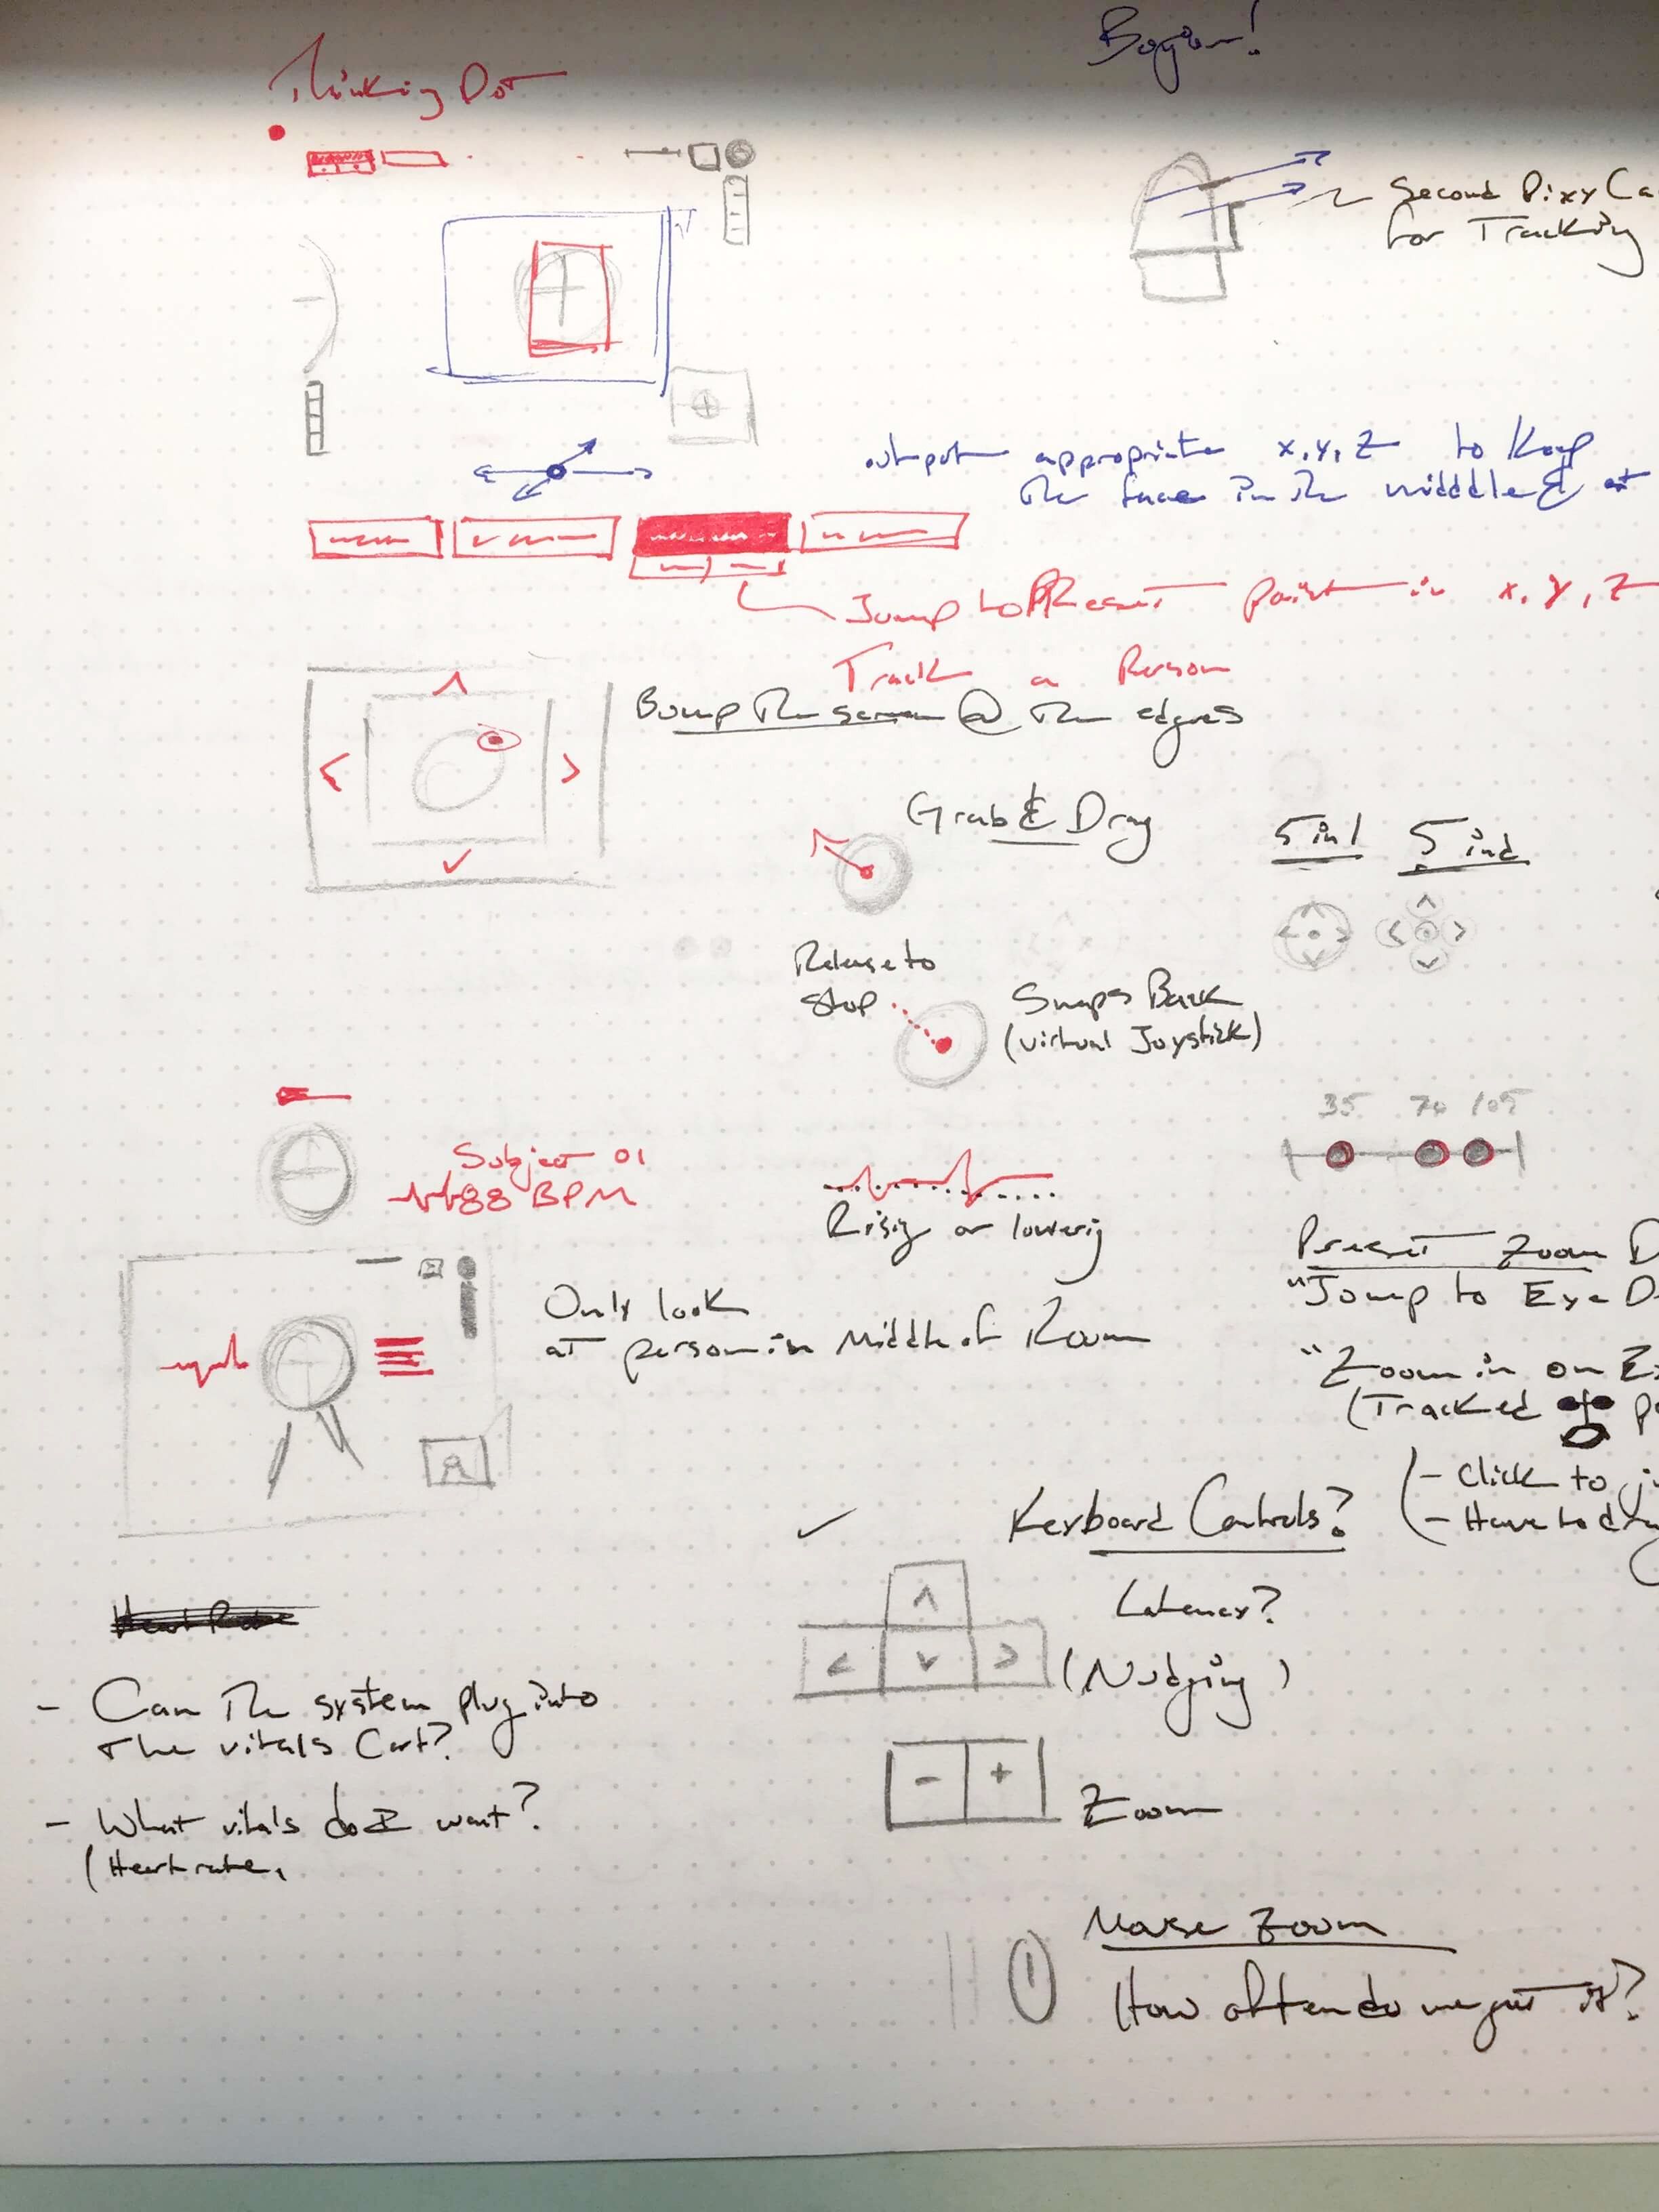 Thinking Dot
Second Pixy Ca
for Tracking
output appropriate x, y, z to keep
the face in the midddle & at
Jump to PReset point in x, y, z
Track a Person
Bump the screen @ the edges
Grab & Drag
5 in 1
5 ind
Release to
stop
Snaps Back
(virtual Joystick)
35 70 105
Subject 01
88 BPM
Rising or lowering
Preset Zoom D
"Jump to Eye D
Only look
at person in Middle of Room
"Zoom in on E
(Tracked
- Click to j
- Have to d
Keyboard Controls?
Latency?
(Nudging)
Heart Rate
- Can the system plug into
the vitals Cart?
- +
Zoom
- What vitals do I want?
(Heart rate,
Mouse Zoom
How often do we get it?